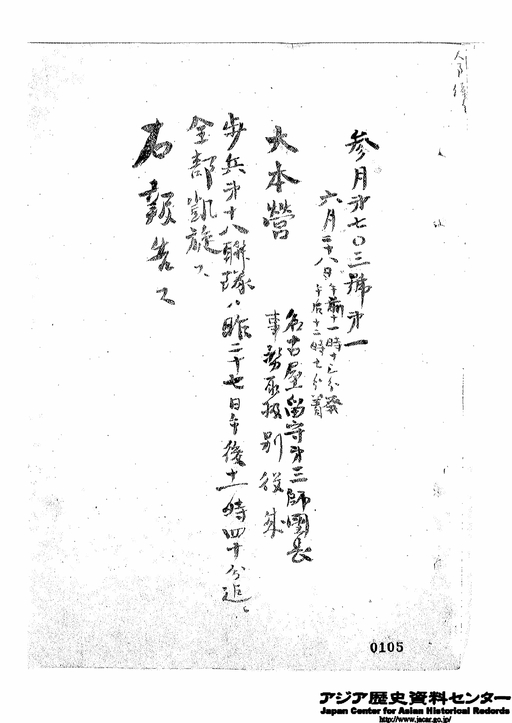 参月第七〇三號第一
六月二十八日午前十一時十三分發
午后十二時七分着
名古屋留守第三師團長
事務取扱別役成
大本營
歩兵第十八聯隊ハ昨二十七日午後十一時四十分迄
全部凱旋ス
右報告ス
0105
アジア歴史資料センター
Japan Center for Asian Historical Records
http://www.jacar.go.jp/